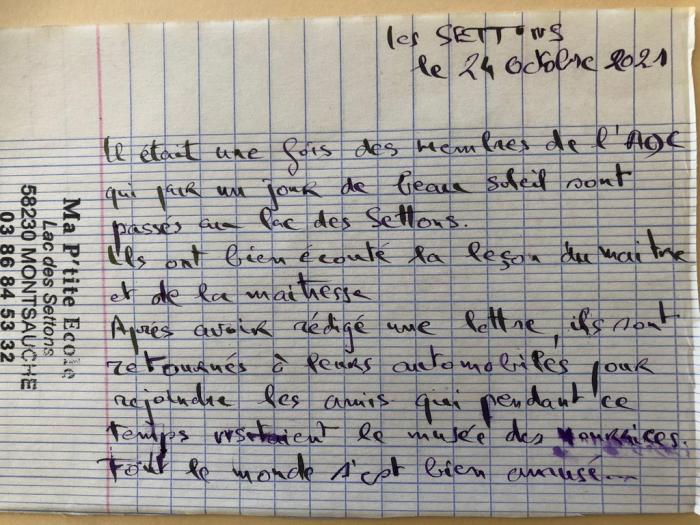 les SETTONS
le 24 octobre 2021
Il était une fois des membres de l'AOC
qui par un jour de beau soleil sont
passés au lac des Settons.
Ils ont bien écouté la leçon du maitre
et de la maitresse
Après avoir rédigé une lettre, ils sont
retournés à leurs automobiles pour
rejoindre les amis qui pendant ce
temps visitaient le musée des nourrices.
tout le monde s'est bien amusé...
Ma P'tite Ecole
Lac des Settons
58230 MONTSAUCHE
03 86 84 53 32